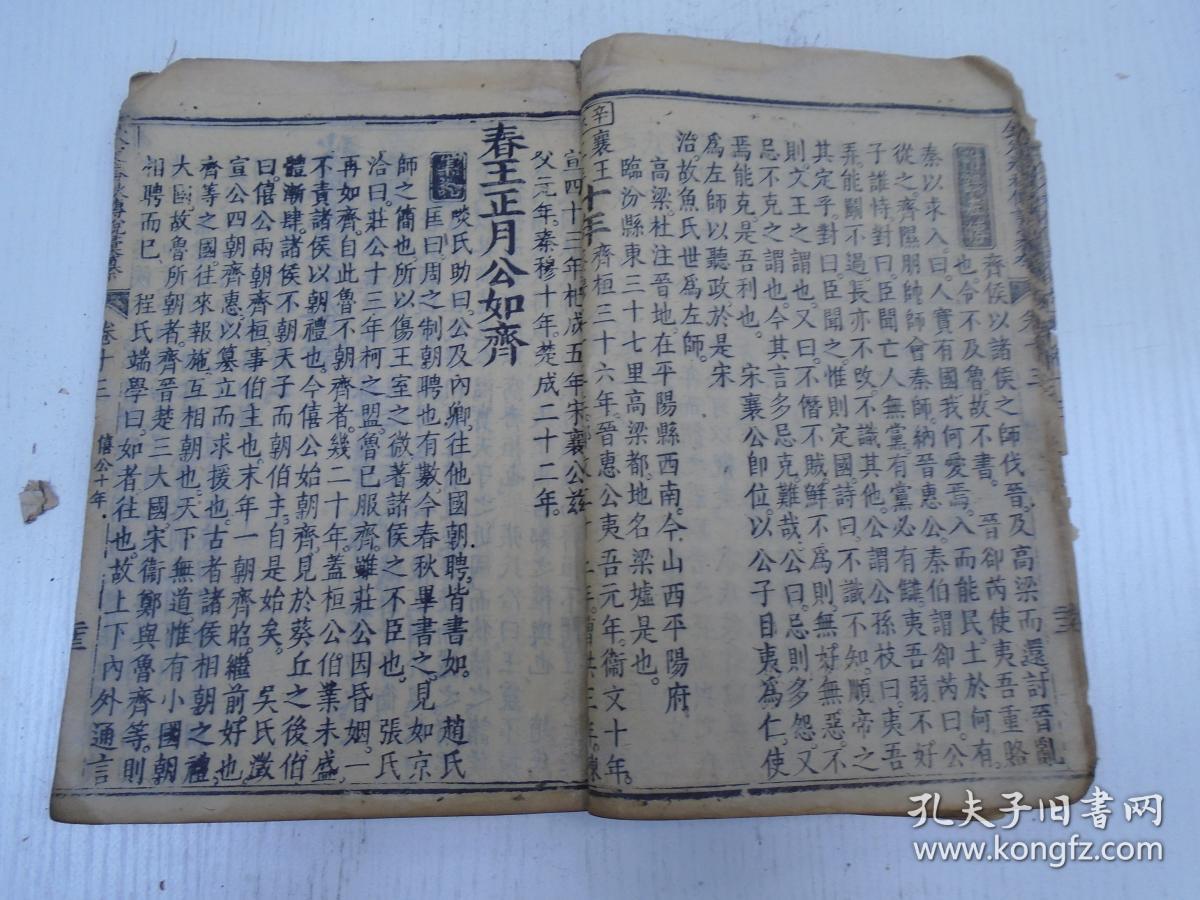 齊侯以諸侯之師伐晉及高梁而還討晉亂
也令不及魯故不書 晉郤芮使夷吾重賂
秦以求入曰人實有國我何愛焉入而能民土於何有
從之齊隰朋帥師會秦師納晉惠公秦伯謂郤芮曰公
子誰恃對曰臣聞亡人無黨有黨必有讎夷吾弱不好
弄能鬬不過長亦不改不識其他公謂公孫枝曰夷吾
其定乎對曰臣聞之惟則定國詩曰不識不知順帝之
則文王之謂也又曰不僭不賊鮮不爲則無好無惡不
忌不克之謂也今其言多忌克難哉公曰忌則多怨又
焉能克是吾利也 宋襄公卽位以公子目夷爲仁使
爲左師以聽政於是宋
治故魚氏世爲左師
高梁杜注晉地在平陽縣西南今山西平陽府
臨汾縣東三十七里高梁都地名梁墟是也
辛 襄王十年 齊桓三十六年晉惠公夷吾元年衞文十年
宣四十三年杞成五年宋襄公兹
父元年秦穆十年楚成二十二年
春王正月公如齊
啖氏助曰公及內卿往他國朝聘皆書如 趙氏
匡曰周之制朝聘也有數今春秋畢書之見如京
師之簡也所以傷王室之微著諸侯之不臣也 張氏
洽曰莊公十三年柯之盟魯已服齊雖莊公因昏姻一
再如齊自此魯不朝齊者幾二十年蓋桓公伯業未盛
不責諸侯以朝禮也今僖公始朝齊見於葵丘之後伯
體漸肆諸侯不朝天子而朝伯主自是始矣 吳氏澂
曰僖公兩朝齊桓事伯主也末年一朝齊昭繼前好也
宣公四朝齊惠以墓立而求援也古者諸侯相朝之禮
齊等之國往來報施互相朝也天下無道惟有小國朝
大國故魯所朝者齊晉楚三大國宋衞鄭與魯齊等則
相聘而已 程氏端學曰如者往也故上下內外通言
卷十三 僖公十年
孔夫子旧书网
www.kongfz.com